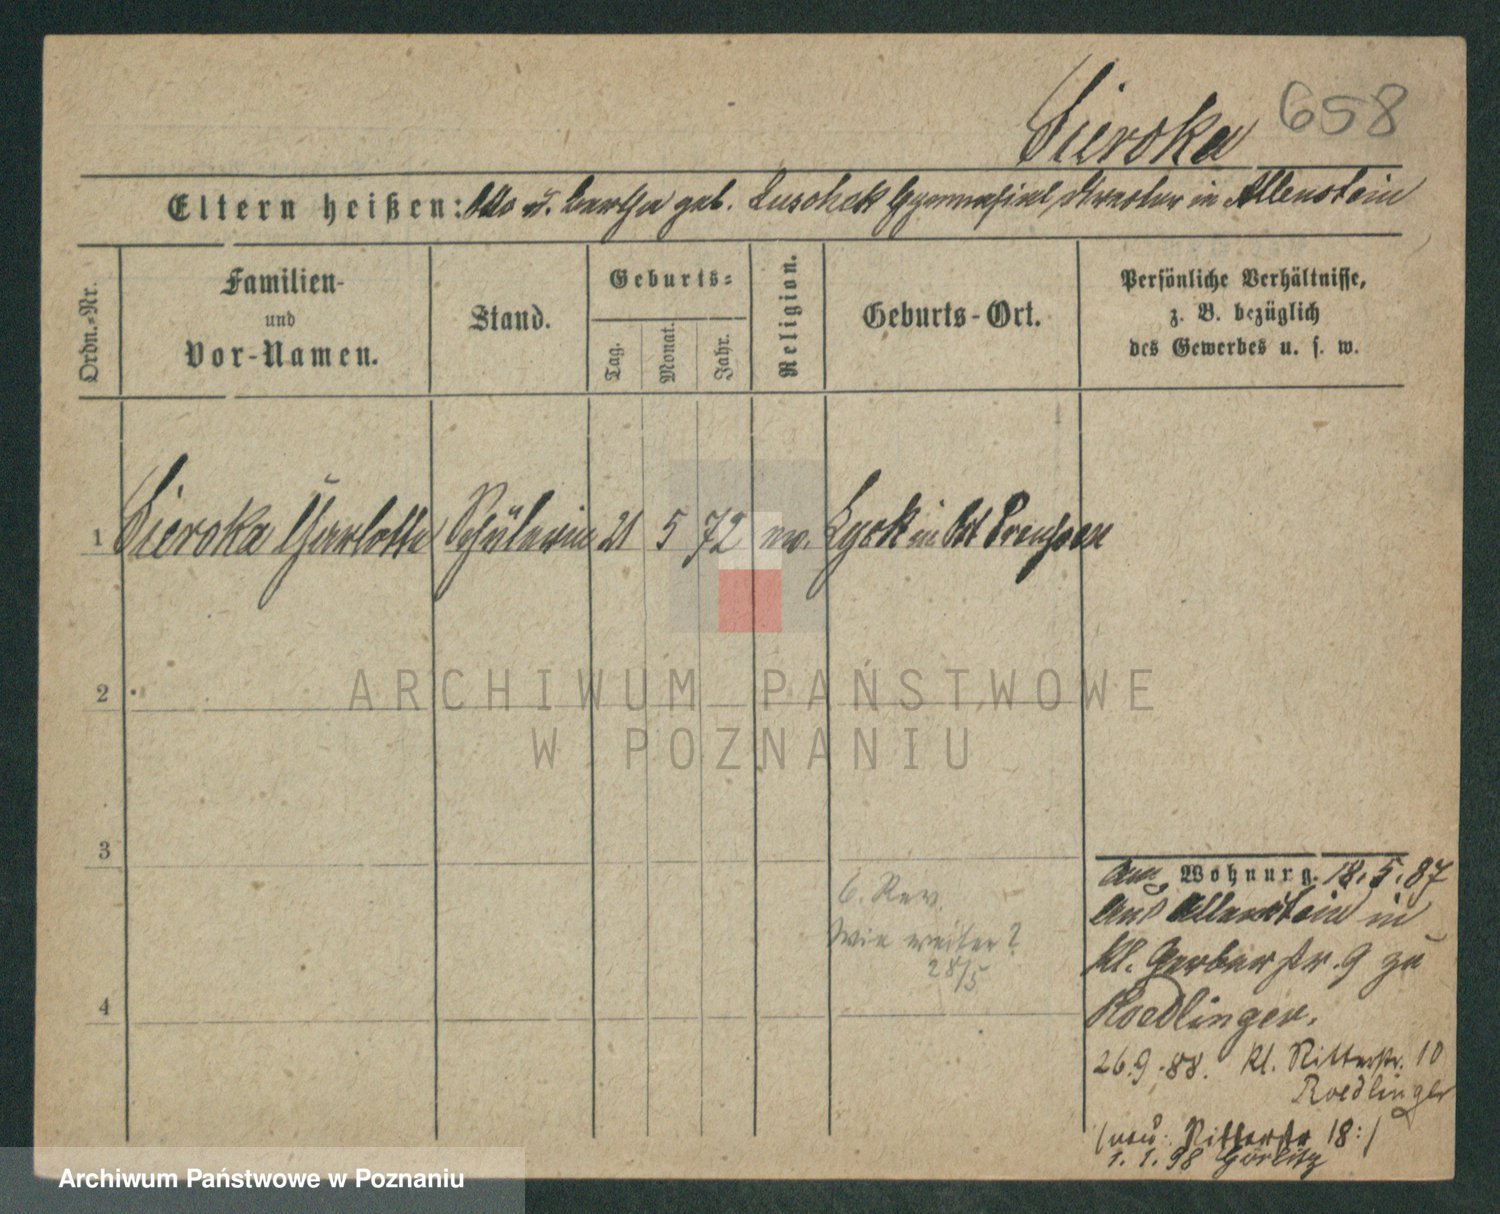 Sieroka 658
Eltern heißen: Otto u. Bertha geb. Luschek Gymnasial Director in Allenstein
Ordn.-Nr.
Familien-
und
Vor-Namen.
Stand.
Geburts-
Tag.
Monat.
Jahr.
Religion.
Geburts-Ort.
Persönliche Verhältnisse,
z. B. bezüglich
des Gewerbes u. s. w.
1 Sieroka Charlotte Schülerin 21 5 72 ev. Lyck in Ost Preussen
2
3
4
6. Rev.
Wie weiter?
28/5
am Wohnung. 18.5.87
aus Allenstein in
kl. Gerberstr. 9 zu
Roedlinger.
26.9.88. kl. Ritterstr. 10
Roedlinger
(neu: Ritterstr 18:)
1.1.98 Görlitz
ARCHIWUM PAŃSTWOWE
W POZNANIU
Archiwum Państwowe w Poznaniu